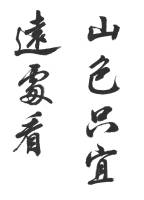 山色只宜
遠處看